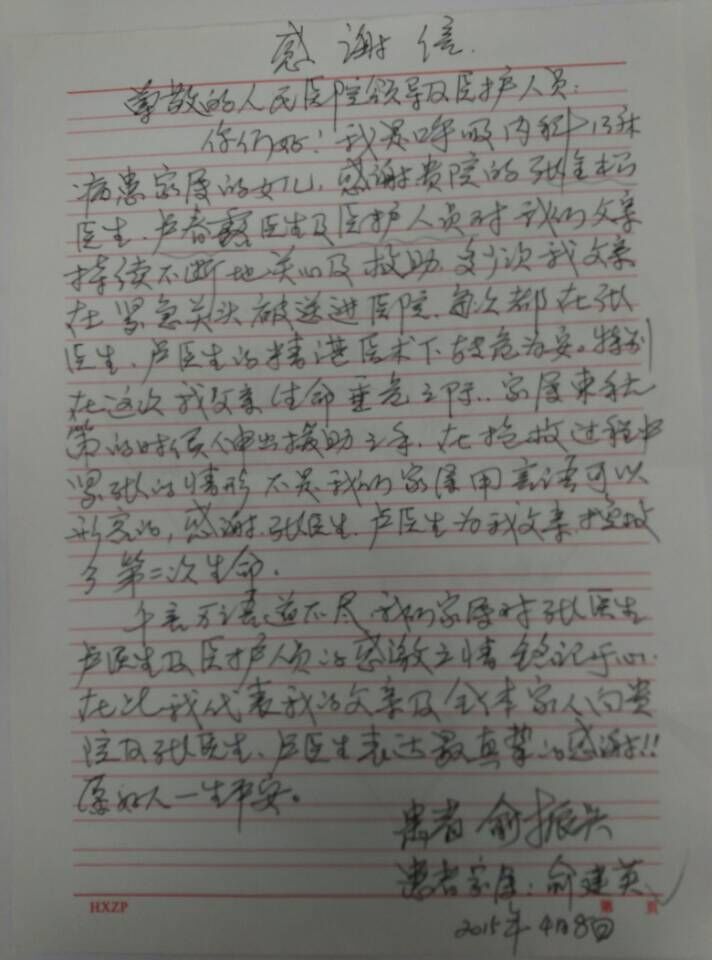 感谢信.
尊敬的人民医院领导及医护人员:
你们好!我是呼吸内科13床
病患家属的女儿,感谢贵院的张
医生.卢春霞医生及医护人员对我们父亲
持续不断地关心及救助.多次我父亲
在紧急关头被送进医院.每次都在张
医生.卢医生的精湛医术下转危为安。特别
在这次我父亲生命垂危之际..家属束手无
策的时候伸出援助之手.在抢救过程中
紧张的情形不是我们家属用言语可以
形容的,感谢.张医生.卢医生为我父亲
了第二次生命.
千言万语道不尽我们家属对张医生
卢医生及医护人员的感激之情铭记于心.
在此我代表我的父亲及全体家人向贵
院及张医生、卢医生表达最真挚的感谢!!
愿好人一生平安。
患者 俞振兴
患者家属:俞建英
2015年4月8日
HXZP 第 页